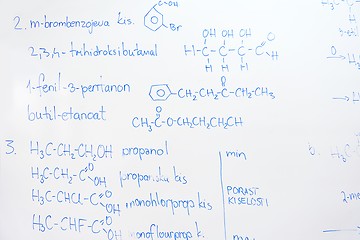 2. m-brombenzojeva kis. C-OH Br
2,3,4-trihidroksibutanal OH OH OH O H-C-C-C-C H H H H
1-fenil-3-pentanon -CH₂CH₂-C-CH₂CH₃ O
butil-etancat CH₃C-O-CH₂CH₂CH₂CH O
3. H₃C-CH₂-CH₂OH propanol min
H₃C-CH₂-C O OH propanska kis
H₃C-CHCl-C O OH monohlorprops kis PORAST KISELOSTI
H₃C-CHF-C O OH monofluorprop k.